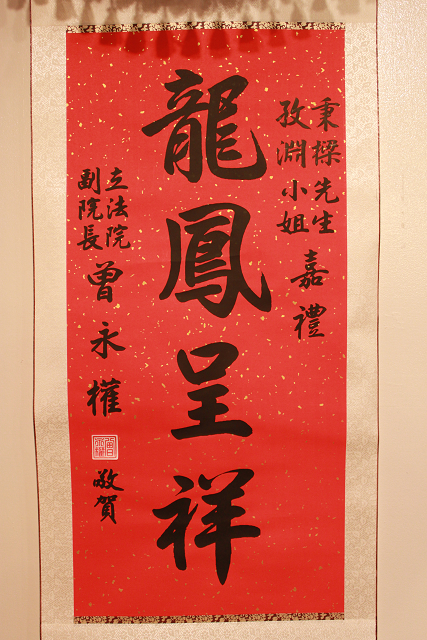 秉樑先生
孜淵小姐
嘉禮
龍鳳呈祥
立法院
副院長
曾永權
敬賀